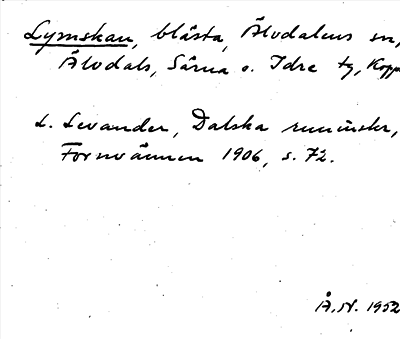 Lymskan, blåsta, Älvdalens sn,
Älvdals, Särna o. Idre tg, Kopp
L. Levander, Dalska runinskr,
Fornvännen 1906, s. 72.
Å.N. 1952